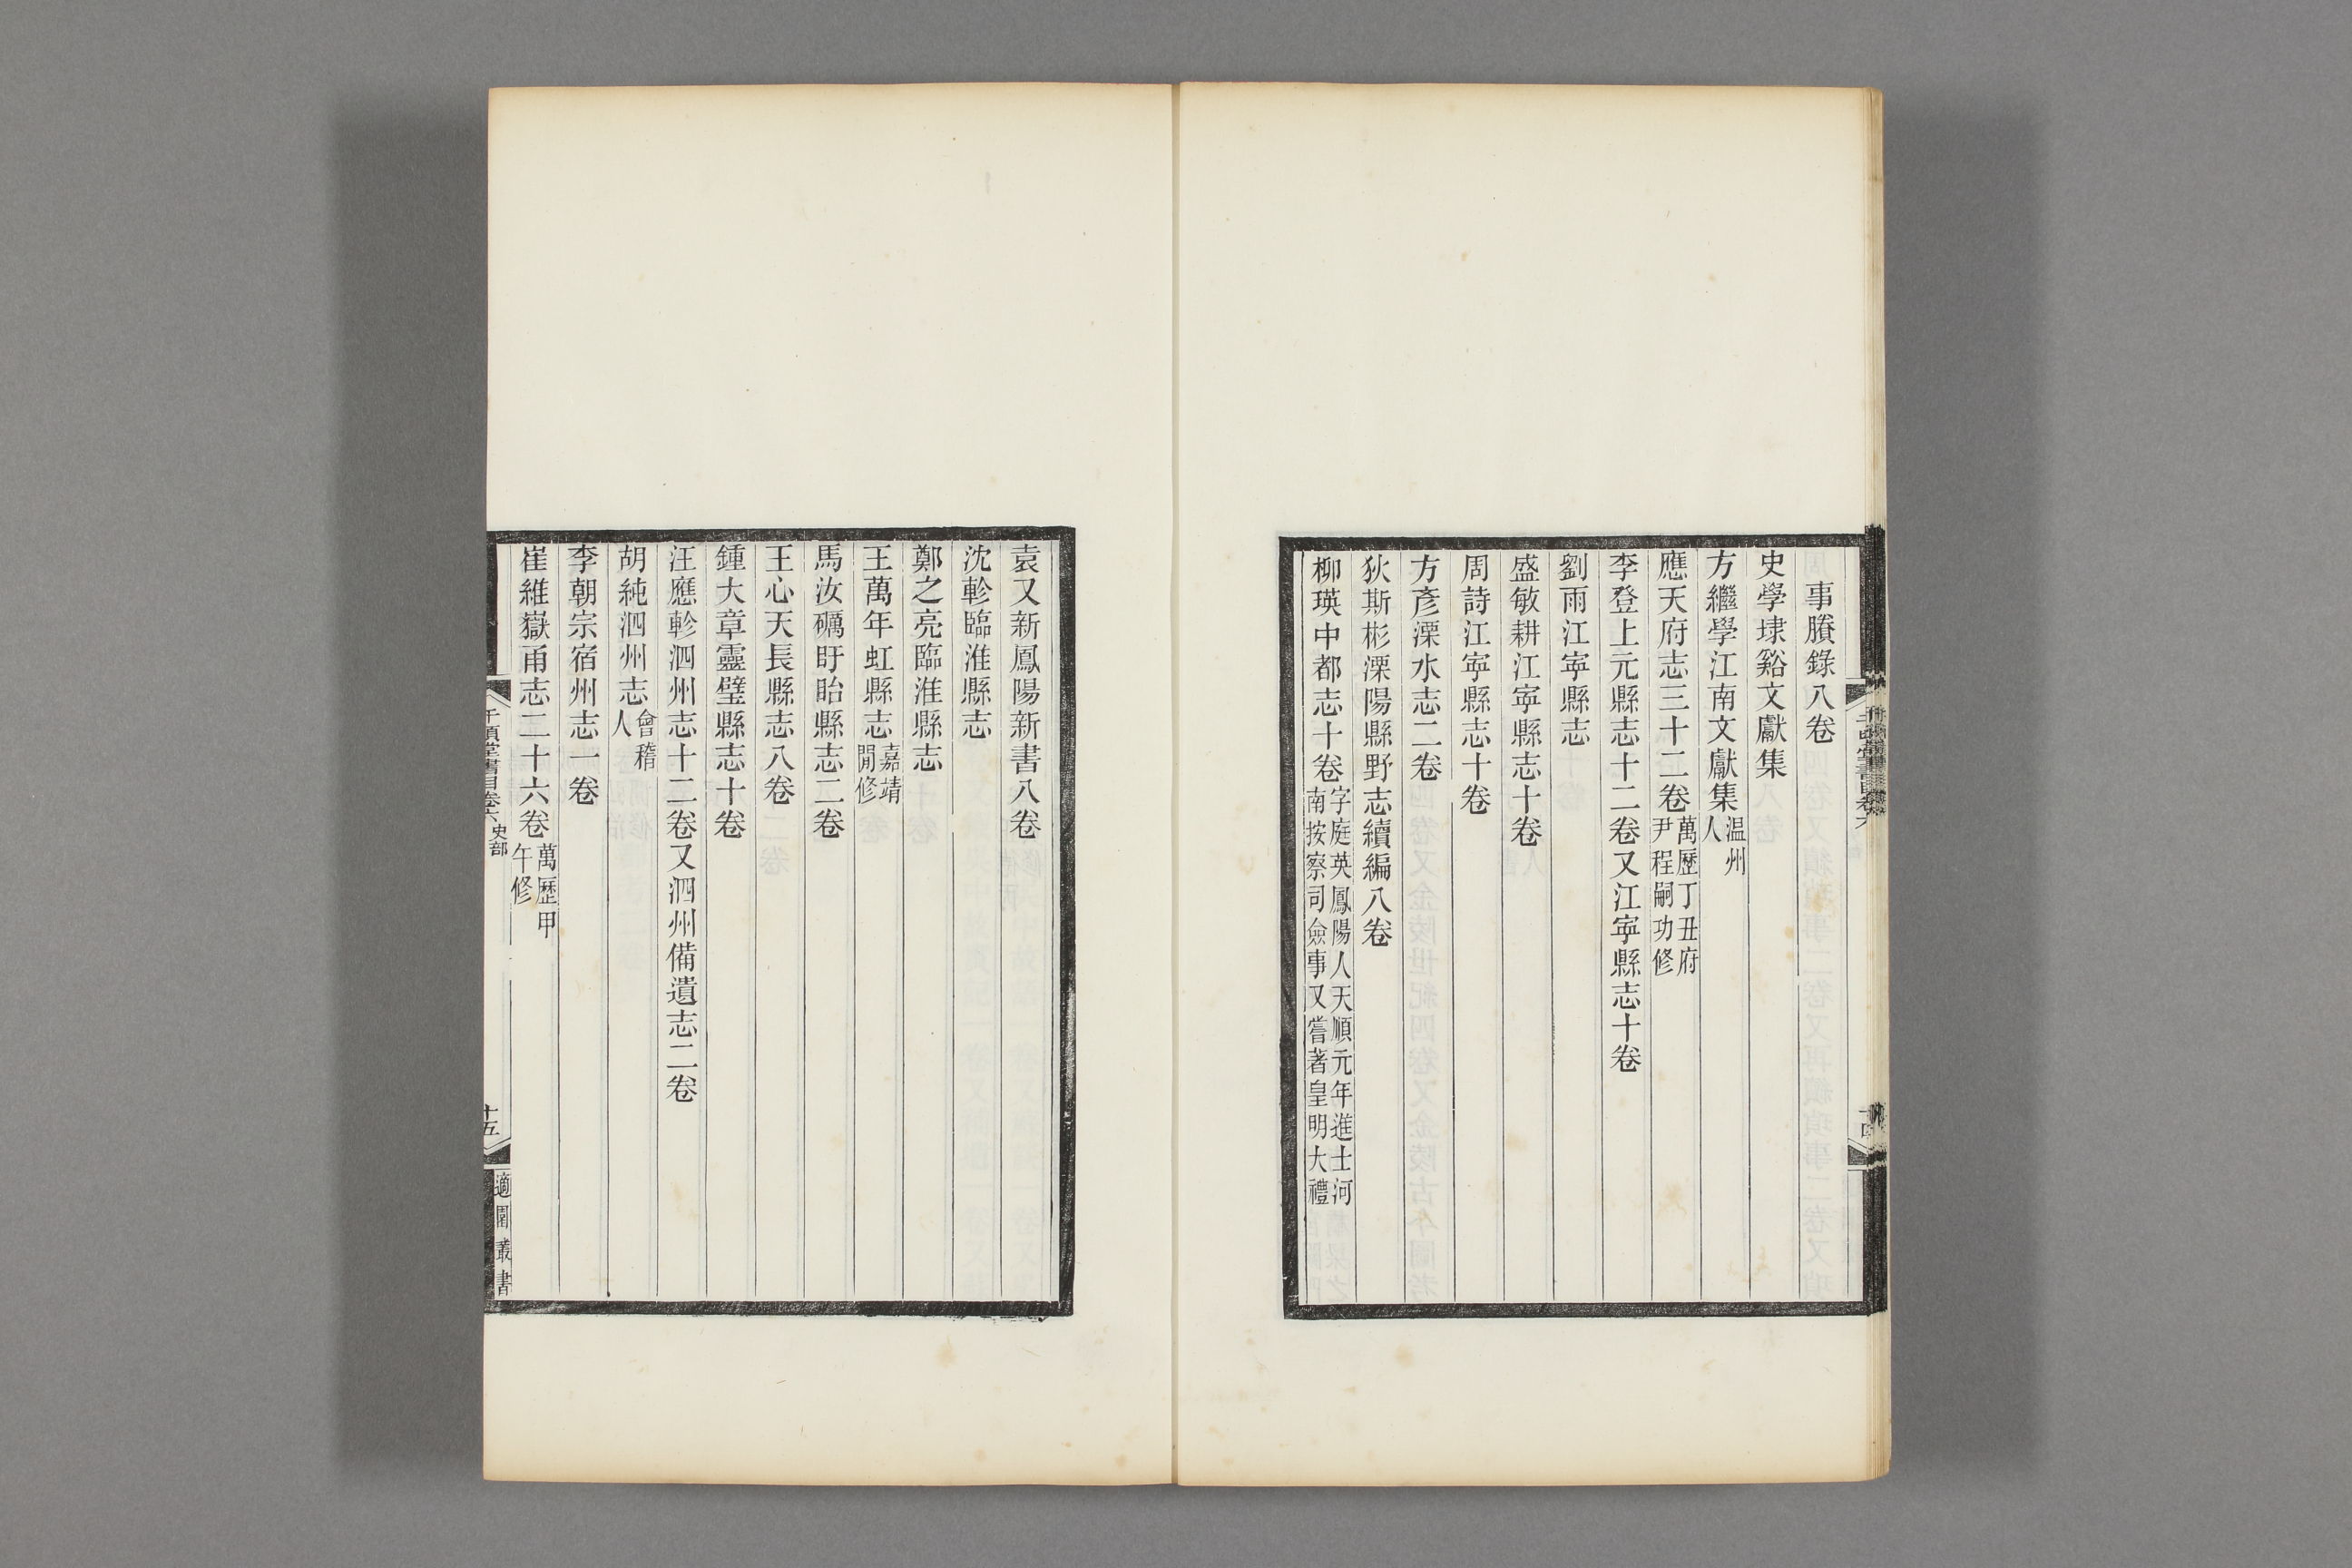 事賸錄八卷
史學埭谿文獻集
方繼學江南文獻集温州人
應天府志三十二卷萬歷丁丑府尹程嗣功修
李登上元縣志十二卷又江寧縣志十卷
劉雨江寧縣志
盛敏耕江寧縣志十卷
周詩江寧縣志十卷
方彥溧水志二卷
狄斯彬溧陽縣野志續編八卷
柳瑛中都志十卷字庭英鳳陽人天順元年進士河南按察司僉事又嘗著皇明大禮
袁又新鳳陽新書八卷
沈軫臨淮縣志
鄭之亮臨淮縣志
王萬年虹縣志嘉靖閒修
馬汝礪盱眙縣志二卷
王心天長縣志八卷
鍾大章靈璧縣志十卷
汪應軫泗州志十二卷又泗州備遺志二卷
胡純泗州志會稽人
李朝宗宿州志一卷
崔維嶽甬志二十六卷萬歷甲午修
千頃堂書目卷六史部
十五
適園叢書